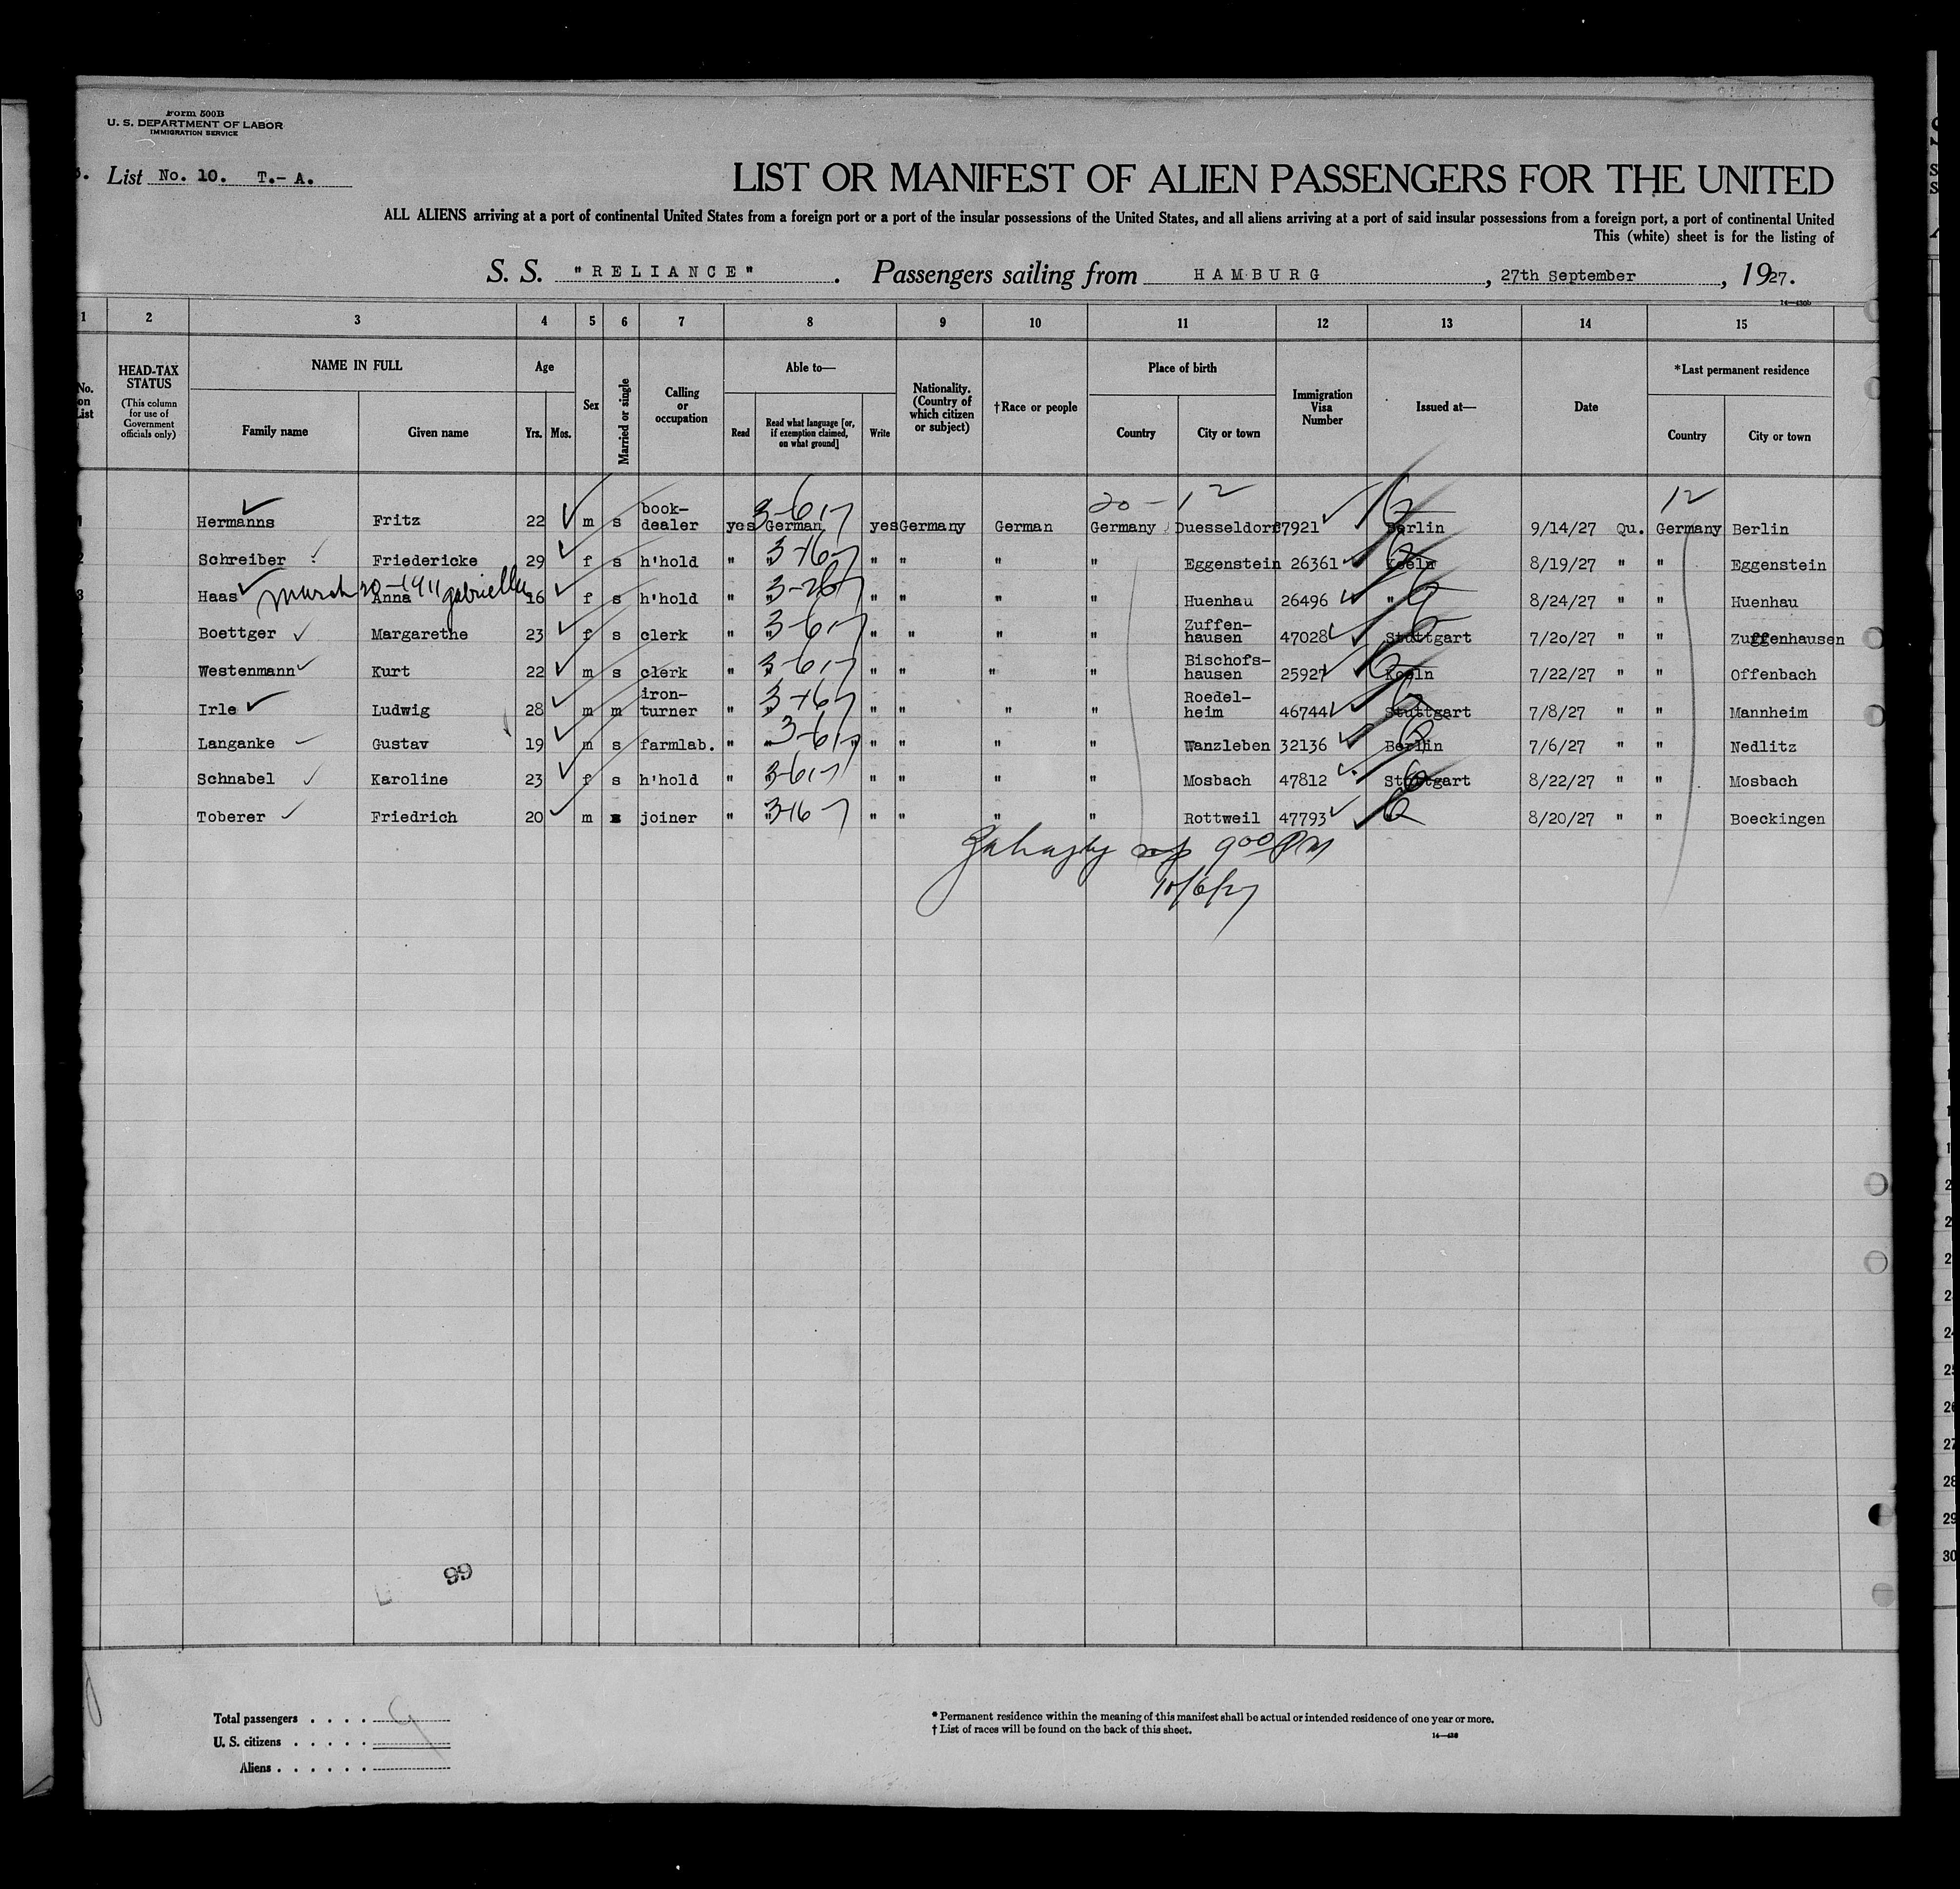 Form 500B
U. S. DEPARTMENT OF LABOR
IMMIGRATION SERVICE
List No. 10. T.- A.
LIST OR MANIFEST OF ALIEN PASSENGERS FOR THE UNITED
ALL ALIENS arriving at a port of continental United States from a foreign port or a port of the insular possessions of the United States, and all aliens arriving at a port of said insular possessions from a foreign port, a port of continental United
This (white) sheet is for the listing of
S. S. "RELIANCE". Passengers sailing from HAMBURG, 27th September, 1927.
1 2 3 4 5 6 7 8 9 10 11 12 13 14 15
No. on List
HEAD-TAX STATUS (This column for use of Government officials only)
NAME IN FULL Family name Given name
Age Yrs. Mos.
Sex
Married or single
Calling or occupation
Able to— Read Read what language [or, if exemption claimed, on what ground] Write
Nationality. (Country of which citizen or subject)
†Race or people
Place of birth Country City or town
Immigration Visa Number
Issued at—
Date
*Last permanent residence Country City or town
20 - 12 12
Hermanns Fritz 22 m s book-dealer yes German yes Germany German Germany Duesseldorf 7921 Berlin 9/14/27 Qu. Germany Berlin
Schreiber Friedericke 29 f s h'hold " " " " " " Eggenstein 26361 Koeln 8/19/27 " " Eggenstein
March 20-1911 gabriella
Haas Anna 16 f s h'hold " " " " " " Huenhau 26496 " 8/24/27 " " Huenhau
Boettger Margarethe 23 f s clerk " " " " " " Zuffen-hausen 47028 Stuttgart 7/20/27 " " Zuffenhausen
Westenmann Kurt 22 m s clerk " " " " " " Bischofs-hausen 25927 Koeln 7/22/27 " " Offenbach
Irle Ludwig 28 m m iron-turner " " " " " " Roedel-heim 46744 Stuttgart 7/8/27 " " Mannheim
Langanke Gustav 19 m s farmlab. " " " " " " Wanzleben 32136 Berlin 7/6/27 " " Nedlitz
Schnabel Karoline 23 f s h'hold " " " " " " Mosbach 47812 Stuttgart 8/22/27 " " Mosbach
Toberer Friedrich 20 m s joiner " " " " " " Rottweil 47793 " 8/20/27 " " Boeckingen
900 PM
10/6/27
99
Total passengers . . . . 9
U. S. citizens . . . . .
Aliens . . . . . .
* Permanent residence within the meaning of this manifest shall be actual or intended residence of one year or more.
† List of races will be found on the back of this sheet.